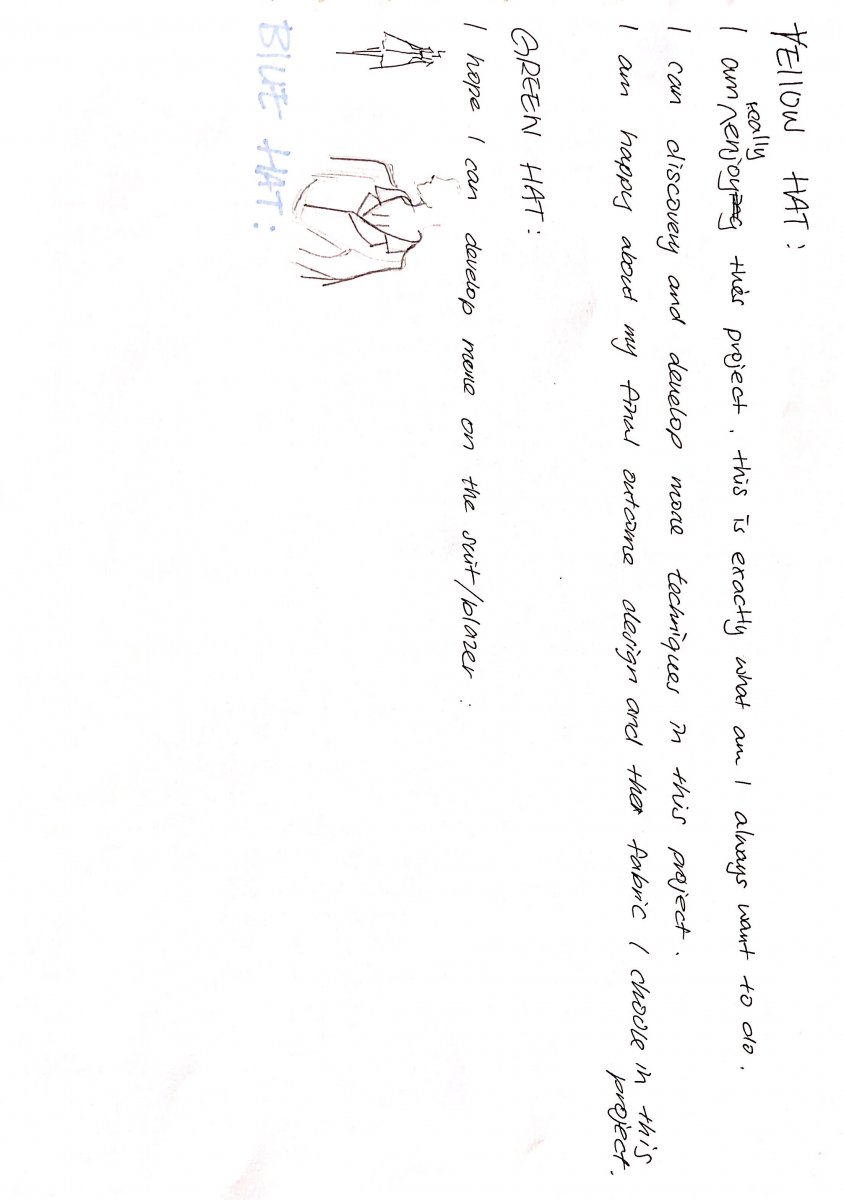 YELLOW HAT:
I am really enjoy this project. this is exactly what am I always want to do.
I can discovery and develop more techniques in this project.
I am happy about my final outcome design and the fabric I choose in this
project.
GREEN HAT:
I hope I can develop more on the suit/blazer:
BLUE HAT: